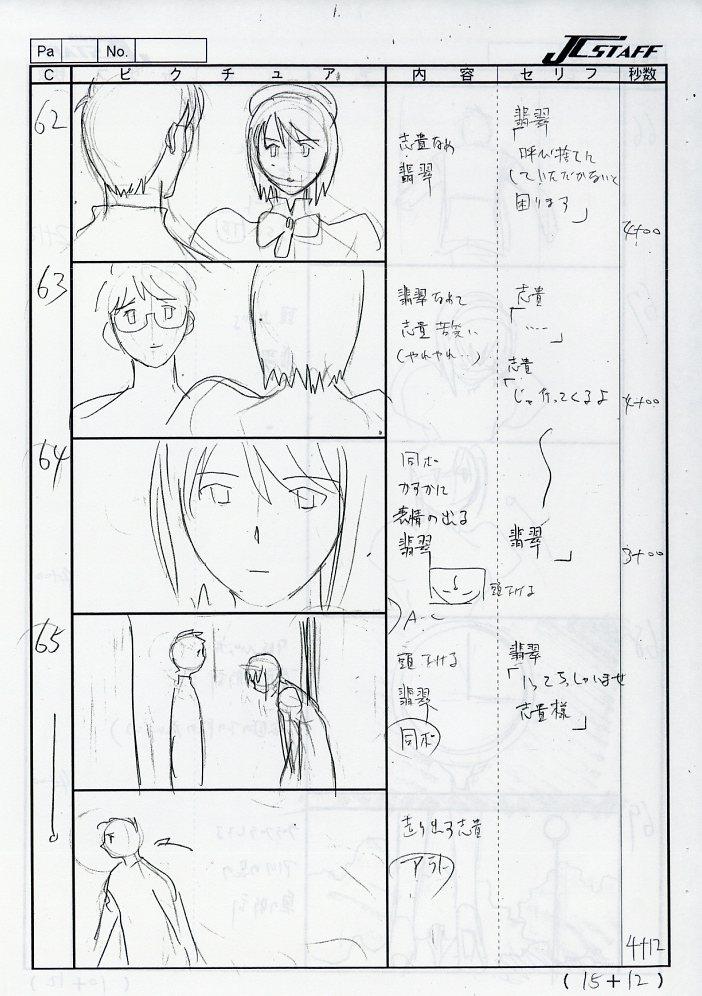 Pa No. J.C.STAFF
C ピクチュア 内容 セリフ 秒数
62
志貴なめ
翡翠
翡翠
「呼び捨てに
していただかないと
困ります」
4+00
63
翡翠なめて
志貴苦笑い
(やれやれ…)
志貴
「……」
志貴
「じゃ行ってくるよ
4+00
64
同ポ
かすかに
表情の出る
翡翠
頭下げる
A-C
翡翠」
3+00
65
頭下げる
翡翠
同ポ
翡翠
「いってらっしゃいませ
志貴様」
走り出す志貴
4+12
(15+12)